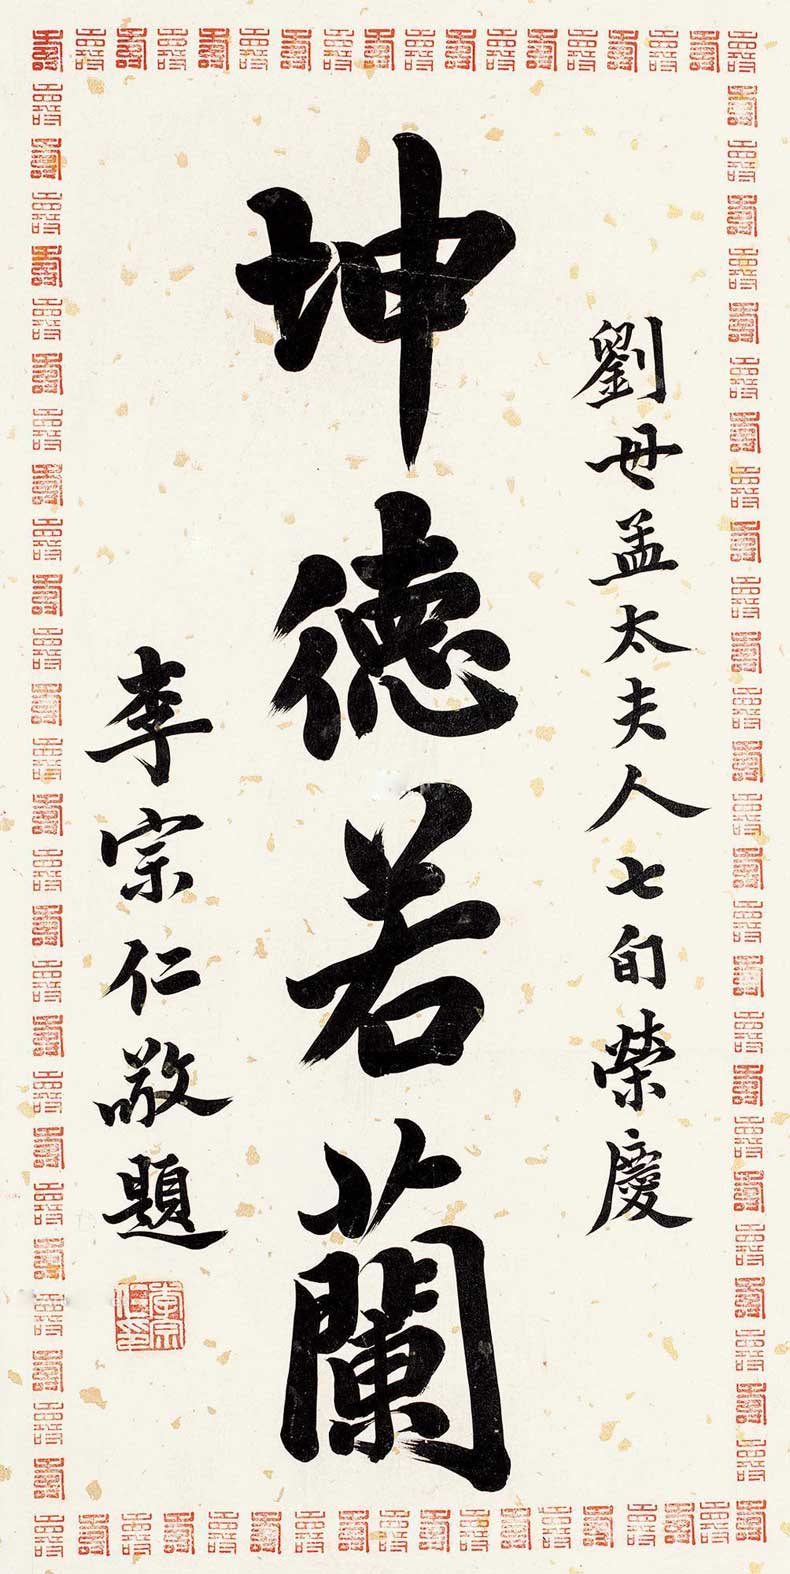 劉母孟太夫人七旬榮慶
坤德若蘭
李宗仁敬題
李宗仁印